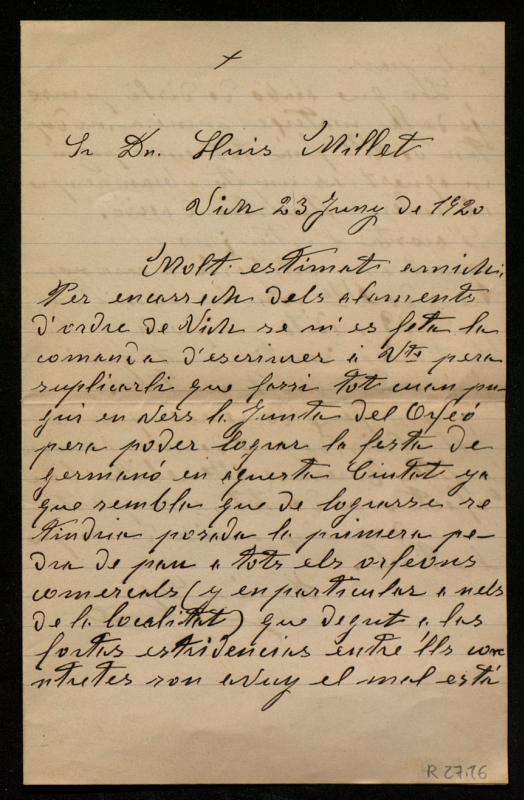 +
Sr Dn. Lluis Millet
Vich 23 Juny de 1920
Molt estimat amich:
Per encarrech dels alaments
d'ordre de Vich se m'es feta la
comanda d'escriurer á Vtè pera
suplicarli que fassi tot cuan pu-
gui en vers la Junta del Orfeó
pera poder lograr la festa de
germanó en aquesta Ciutat ya
que sembla que de lograrse se
tindria posada la primera pe-
dra de pau a tots els orfeons
comercals (y en particular a nels
de la localitat) que degut a las
fortas estridencias entre ells
son avuy el mal está
R 27.16